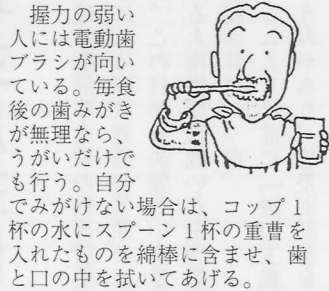 握力の弱い
人には電動歯
ブラシが向い
ている。毎食
後の歯みがき
が無理なら、
うがいだけで
も行う。自分
でみがけない場合は、コップ1
杯の水にスプーン1杯の重曹を
入れたものを綿棒に含ませ、歯
と口の中を拭いてあげる。